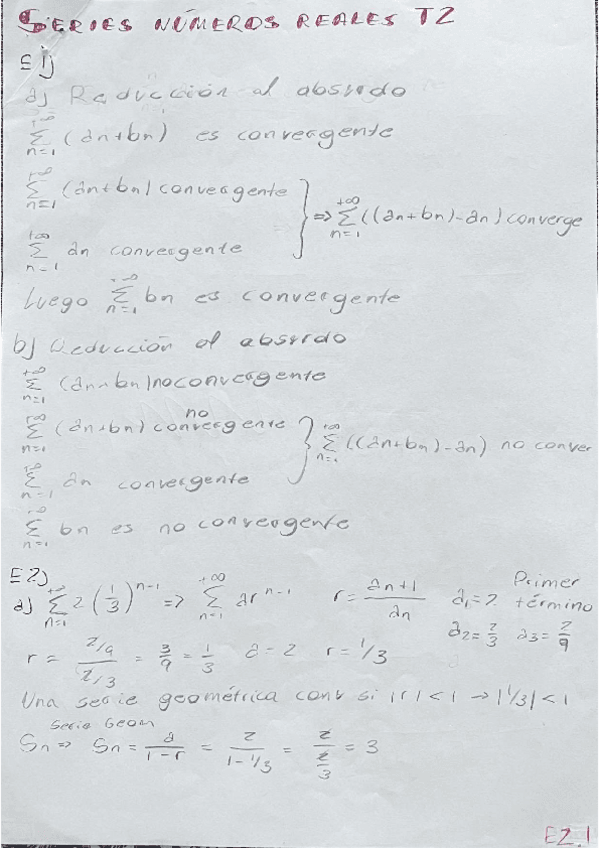 SERIES NÚMEROS REALES T2
E1)
a) Reducción al absurdo
+∞ ∑ n=1 (an+bn) es convergente
+∞ ∑ n=1 (an+bn) convergente
+∞ ∑ n=1 an convergente
} => +∞ ∑ n=1 ((an+bn)-an) converge
Luego +∞ ∑ n=1 bn es convergente
b) Reducción al absurdo
+∞ ∑ n=1 (an+bn) no convergente
+∞ ∑ n=1 (an+bn) no convergente
+∞ ∑ n=1 an convergente
} +∞ ∑ n=1 ((an+bn)-an) no conver
+∞ ∑ n=1 bn es no convergente
E2)
a) +∞ ∑ n=1 2(1/3)^n-1 => +∞ ∑ n=1 ar^n-1 r = an+1/an a1=2 Primer término
a2=2/3 a3=2/9
r = (2/9)/(2/3) = 3/9 = 1/3 a=2 r=1/3
Una serie geométrica conv si |r|<1 → |1/3|<1
Serie Geom
Sn => Sn = a/(1-r) = 2/(1-1/3) = 2/(2/3) = 3
E2.1